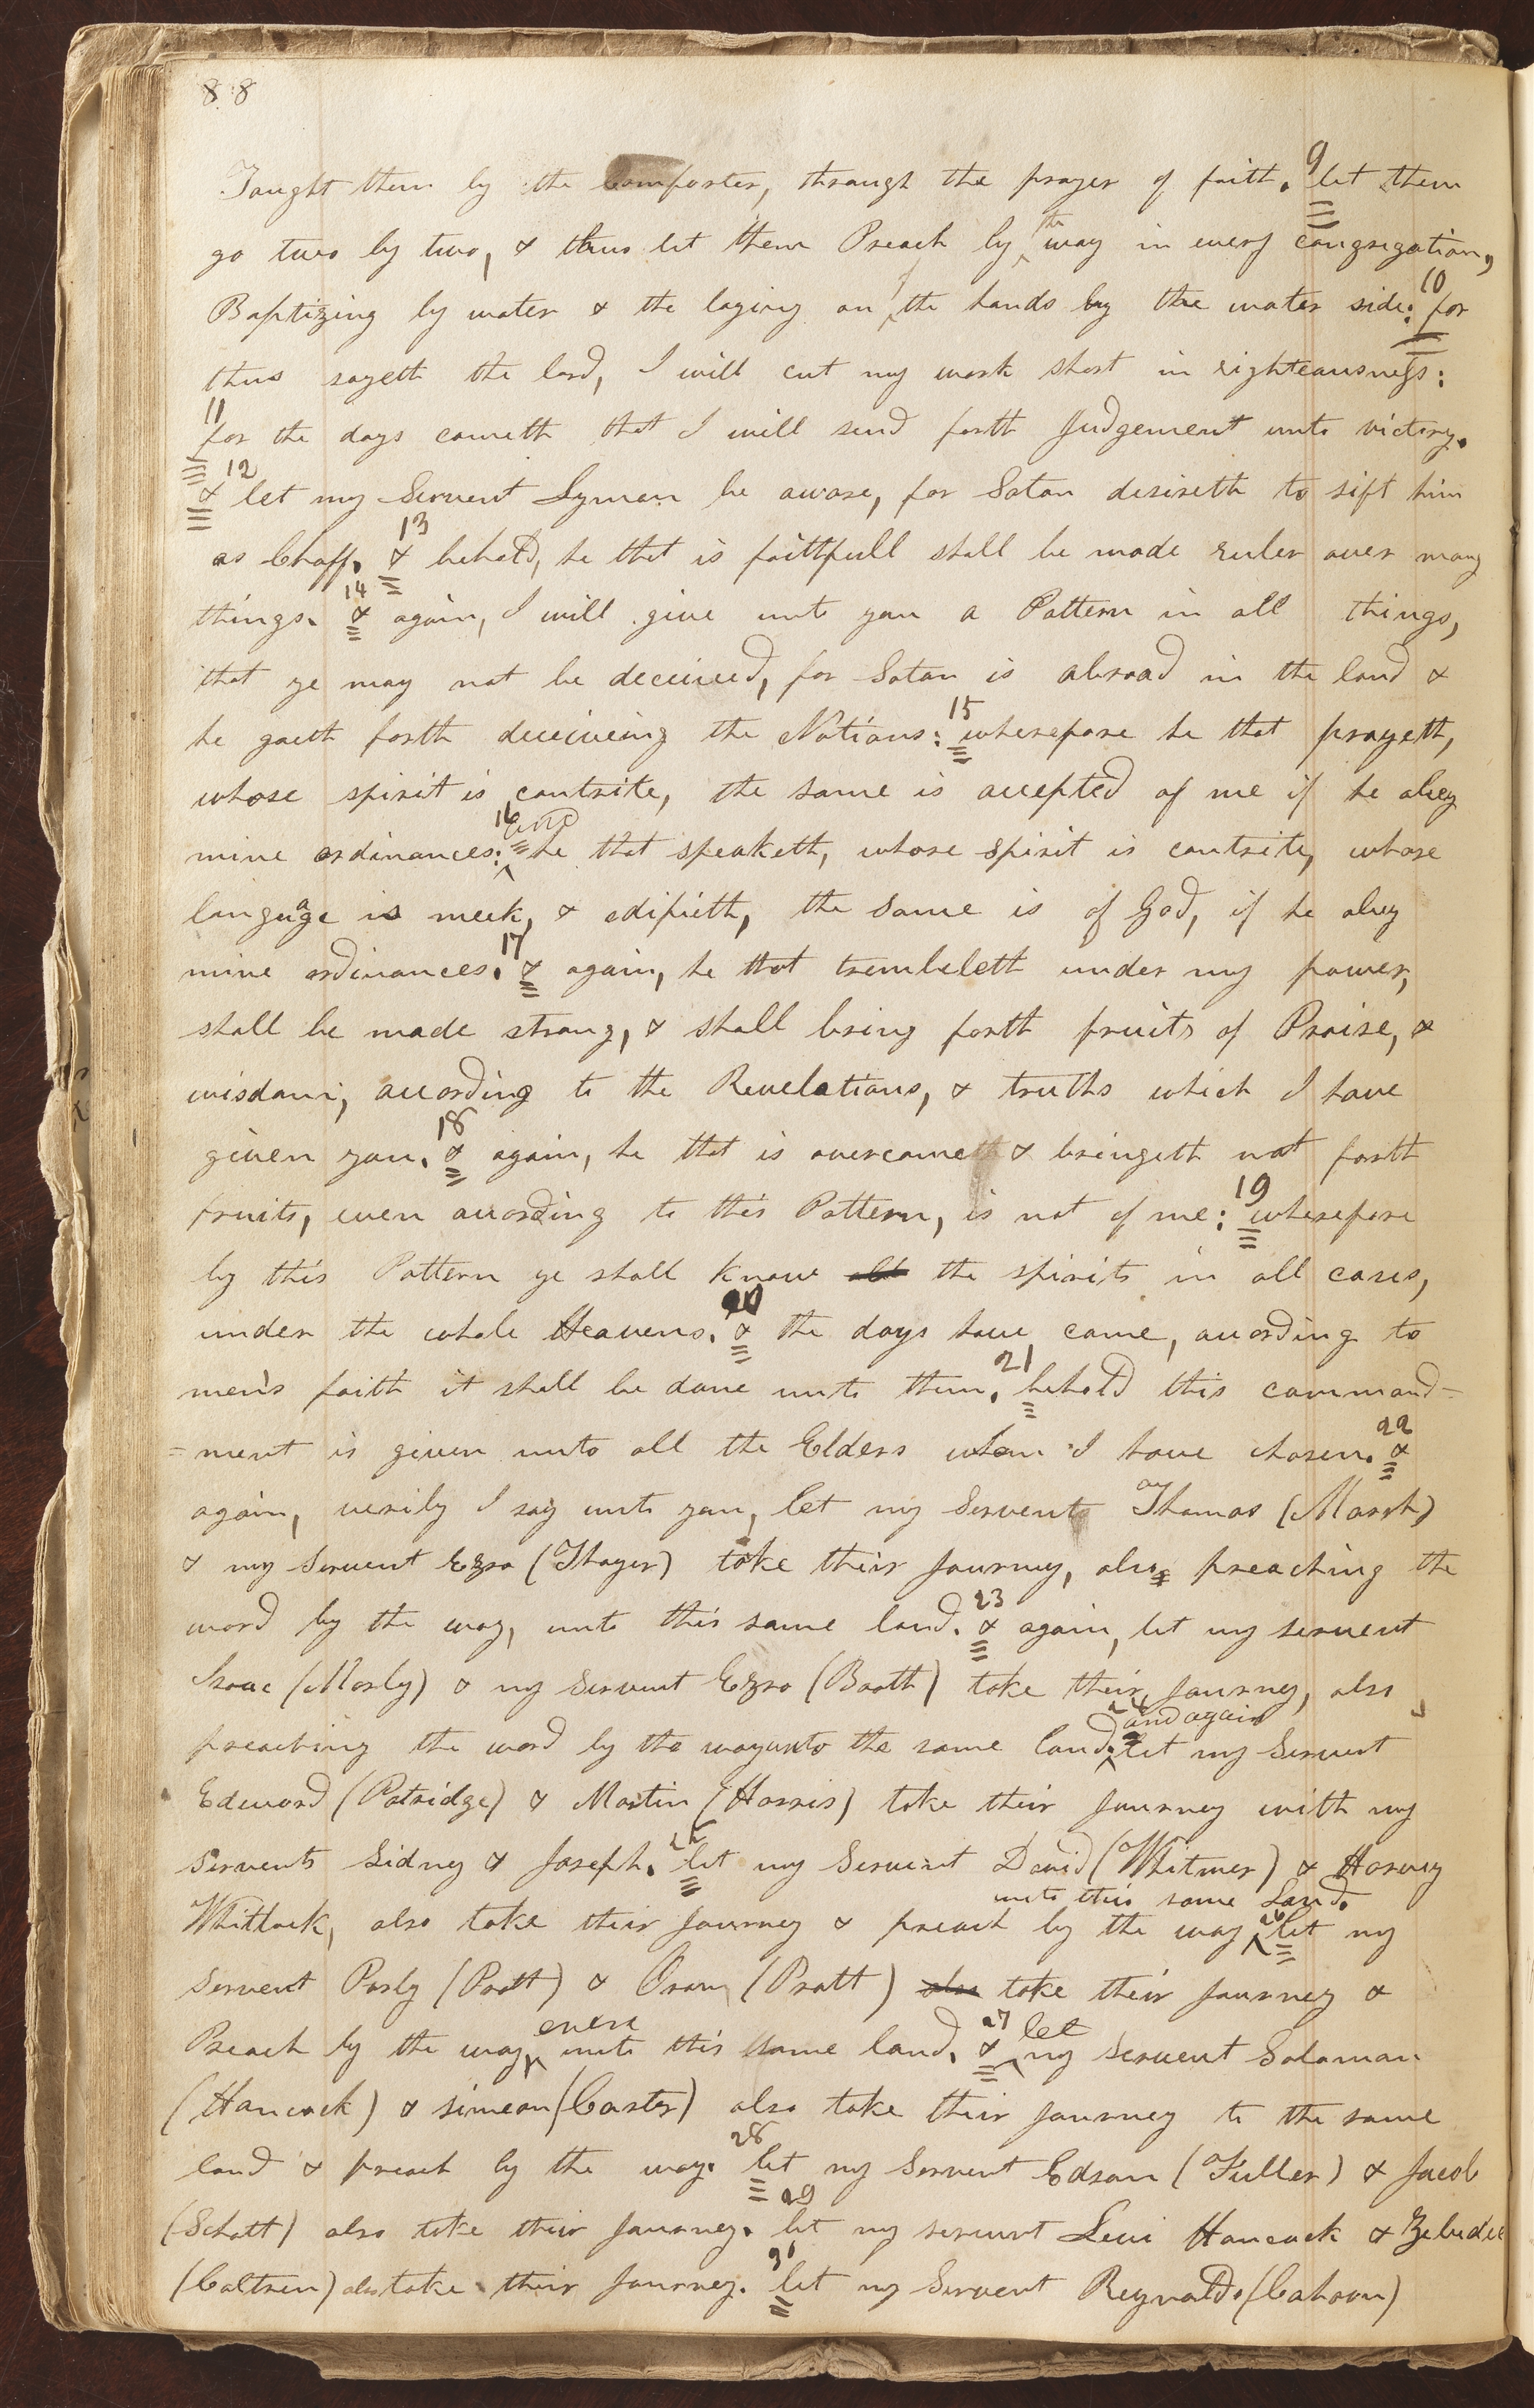 88
Taught them by the Comforter, through the prayer of faith. 9 let them
go two by two, & thus let them Preach by the way in every congregation,
Baptizing by water & the laying on of the hands by the water side: 10 for
thus sayeth the lord, I will cut my work short in righteousness:
11 for the days cometh that I will send forth Judgement unto victory.
12 & let my Servent Lyman be aware, for Satan desireth to sift him
as Chaff. 13 & behold, he that is faithfull shall be made ruler over many
things. 14 & again, I will give unto you a Pattern in all things,
that ye may not be deceived, for Satan is abroad in the land &
he goeth forth deceiveing the Nations: 15 wherefore he that prayeth,
whose spirit is contrite, the same is accepted of me if he obey
mine ordinances: 16 and he that speaketh, whose spirit is contrite, whose
language is meek, & edifieth, the same is of God, if he obey
mine ordinances. 17 & again, he that trembeleth under my power,
shall be made strong, & shall bring forth fruits of Praise, &
wisdom, according to the Revelations, & truths which I have
given you. 18 & again, he that is overcome & bringeth not forth
fruits, even according to this Pattern, is not of me: 19 wherefore
by this Pattern ye shall know all the spirits in all cases,
under the whole Heavens. 20 & the days have come, according to
men's faith it shall be done unto them. 21 behold this command=
=ment is given unto all the Elders whom I have chosen. 22 &
again, verily I say unto you, let my Servent Thomas (Marsh)
& my Servent Ezra (Thayer) take their Journey, also preaching the
word by the way, unto this same land. 23 & again, let my servent
Isaac (Morly) & my Servent Ezra (Booth) take their Journey, also
preaching the word by the way unto the same land. 24 and again let my Servent
Edward (Patridge) & Martin (Harris) take their Journey with my
Servents Sidney & Joseph. 25 let my Servent David (Whitmer) & Harvey
Whitlock, also take their Journey & preach by the way unto this same Land. 26 let my
Servent Parly (Pratt) & Orson (Pratt) also take their Journey &
Preach by the way, even unto this same land. 27 & let my Servent Solomon
(Hancock) & simeon (Carter) also take their Journey to the same
land & preach by the way. 28 let my Servent Edson (Fuller) & Jacob
(Schott) also take their Journey. 29 let my servent Levi Hancock & Zebedee
(Coltrin) also take their Journey. 30 let my Servent Reynolds (Cahoon)